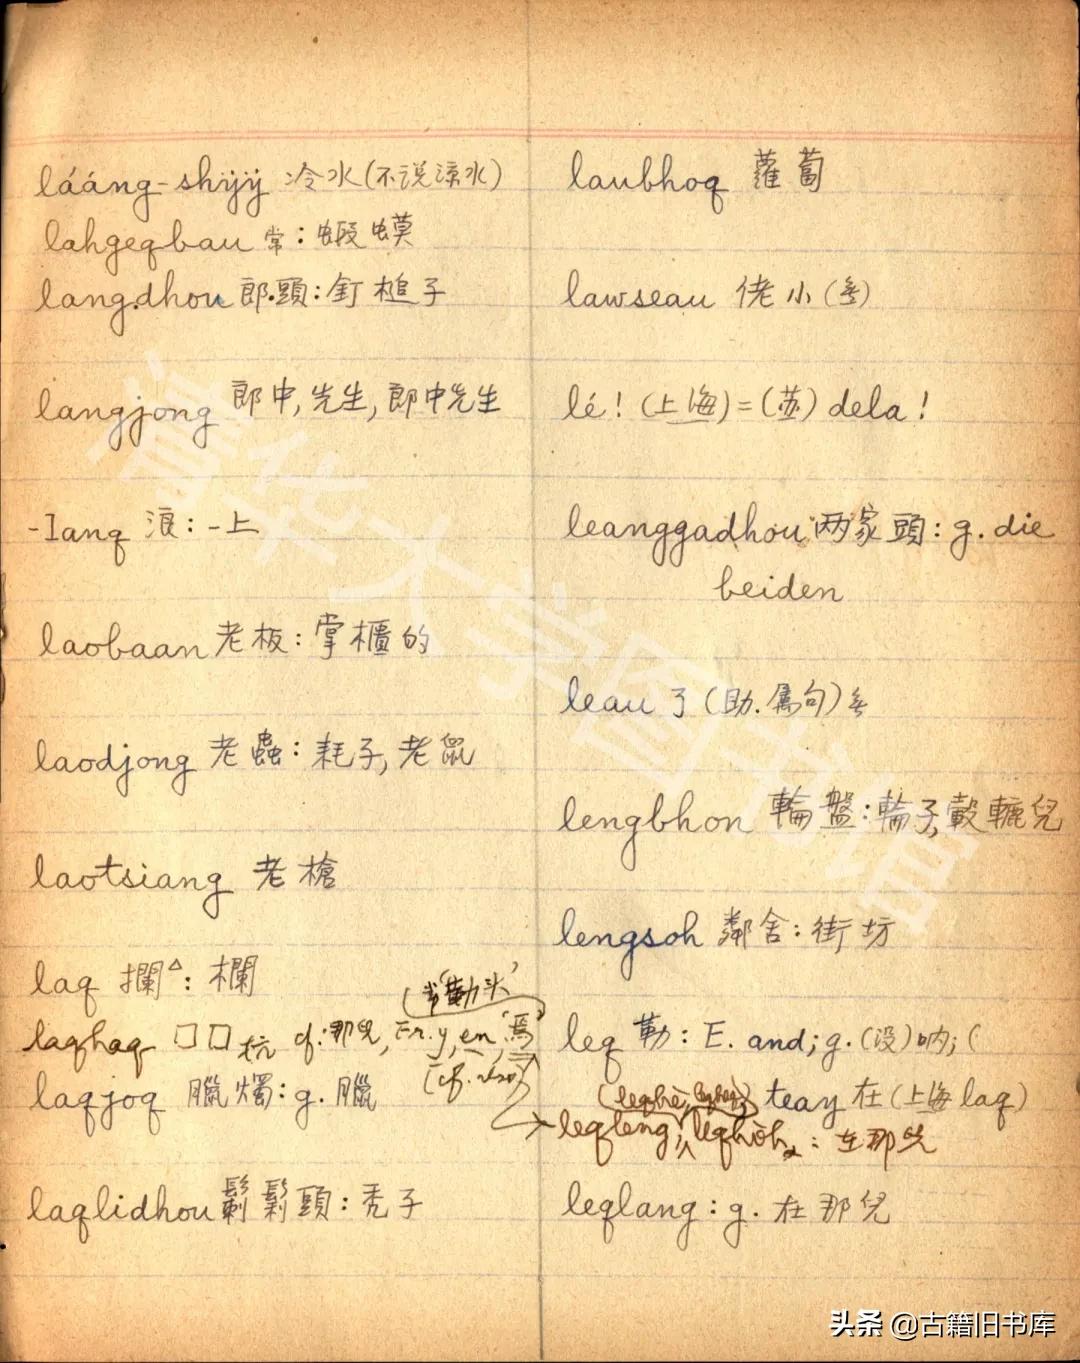 lááng-shÿÿ 冷水(不说涼水)
lahgeqbau 常:蝦蟆
lang.dhou 郎.頭:釘槌子
langjong 郎中,先生,郎中先生
-lanq 浪:-上
laobaan 老板:掌櫃的
laodjong 老蟲:耗子,老鼠
laotsiang 老槍
laq 攔△:欄
(常'勤头'
laqhaq □□杭 cf:那兒, Fr. y, en, '焉'
laqjoq 臘燭:g. 臘
laqlidhou 鬎鬁頭:秃子
laubhoq 蘿蔔
lawseau 佬小(
lé!(上海)=(苏)dela!
leanggadhou 两家頭:g. die
beiden
leau 了(助.屬句)
lengbhon 輪盤:輪子,轂轆兒
lengsoh 鄰舍:街坊
leq 勒:E. and; g.(没)呐;(
teay 在(上海 laq)
leqleng, leqhoh:在那兒
leqlang:g. 在那兒
清华大学图书馆
头条 @古籍旧书库